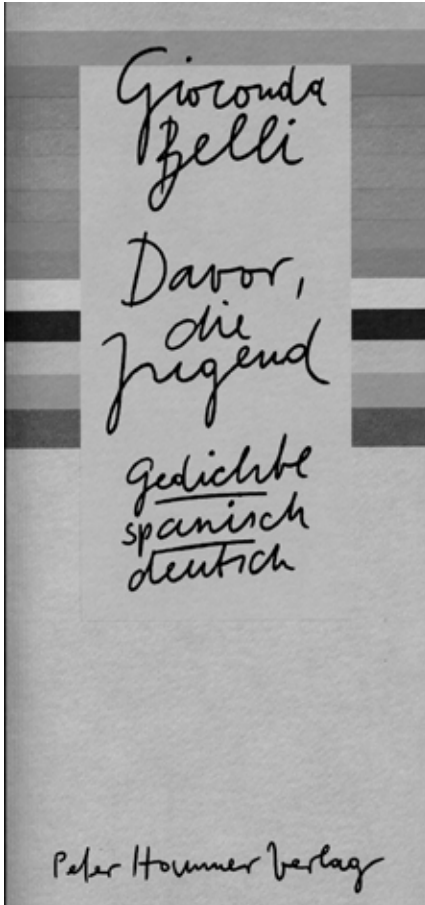 Gioconda
Belli
Davor,
die
Jugend
Gedichte
spanisch
deutsch
Peter Hammer Verlag